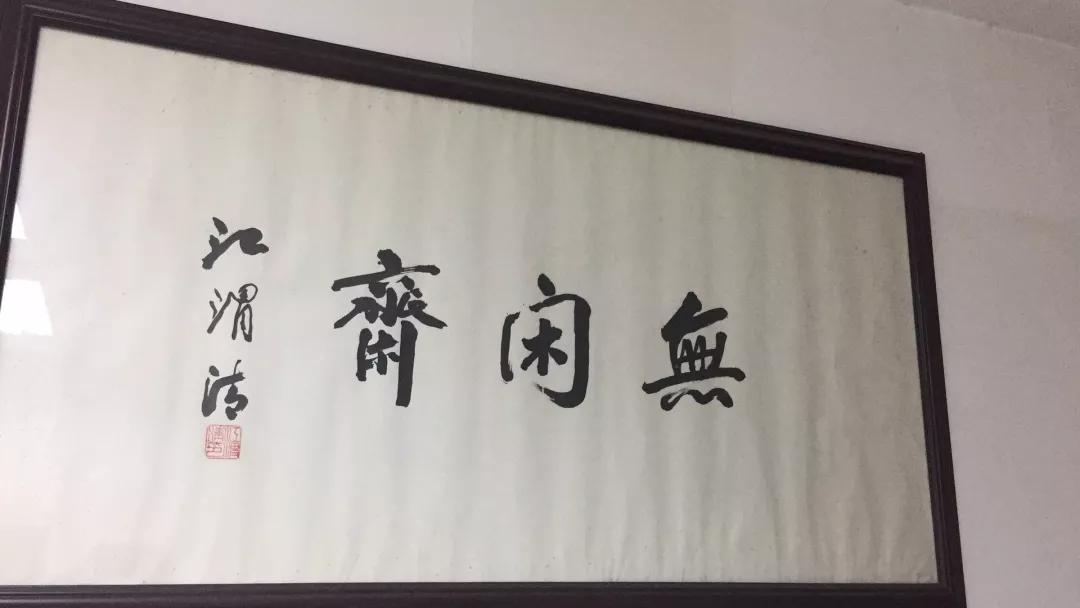 無闲齋
江渭清